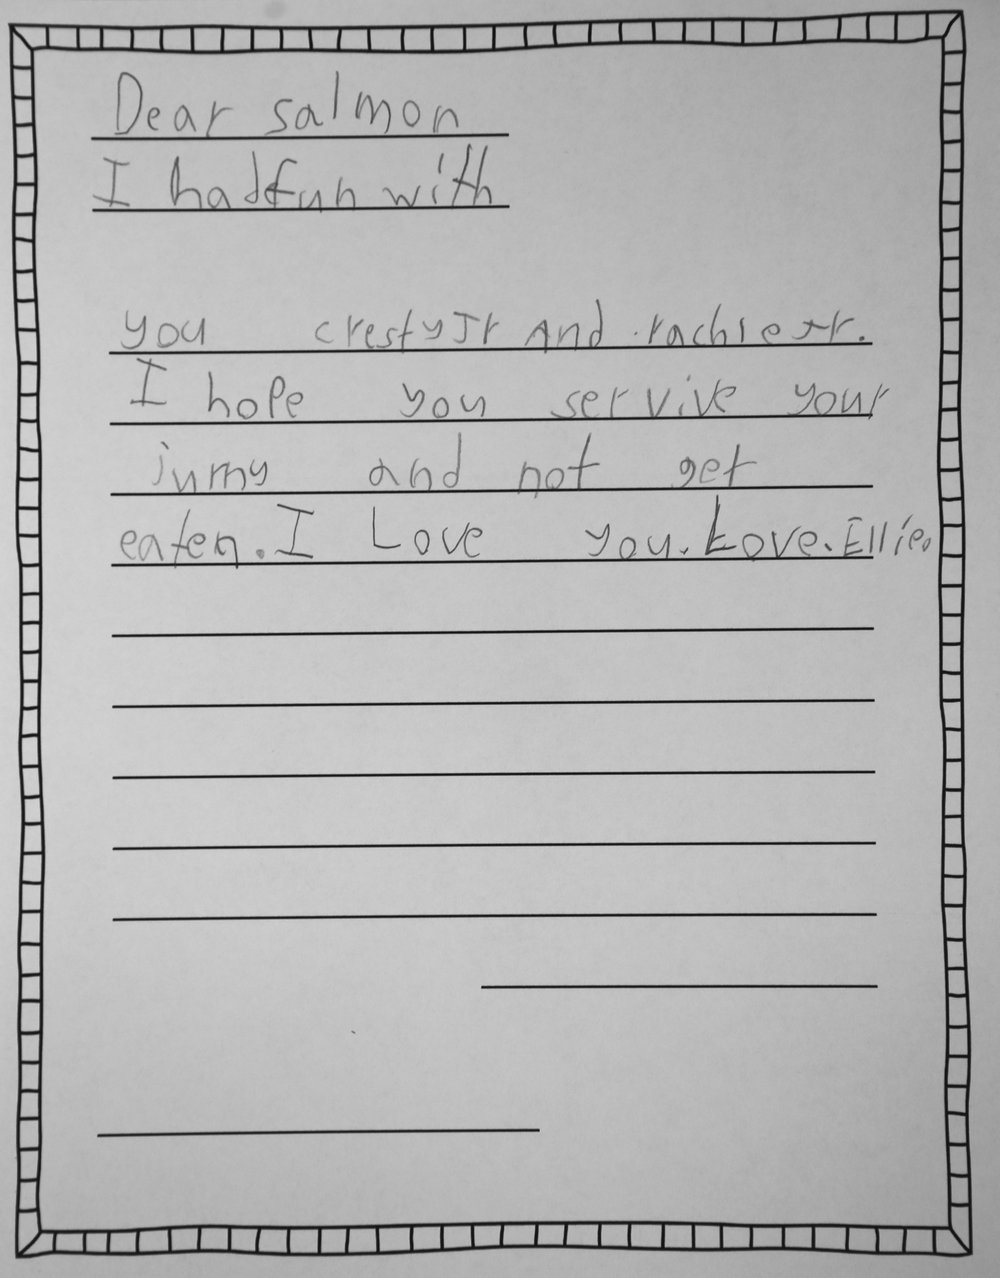 Dear salmon
I had fun with
you cresty Jr And rachie Jr.
I hope you servive your
jurny and not get
eaten. I Love you. Love. Ellie.